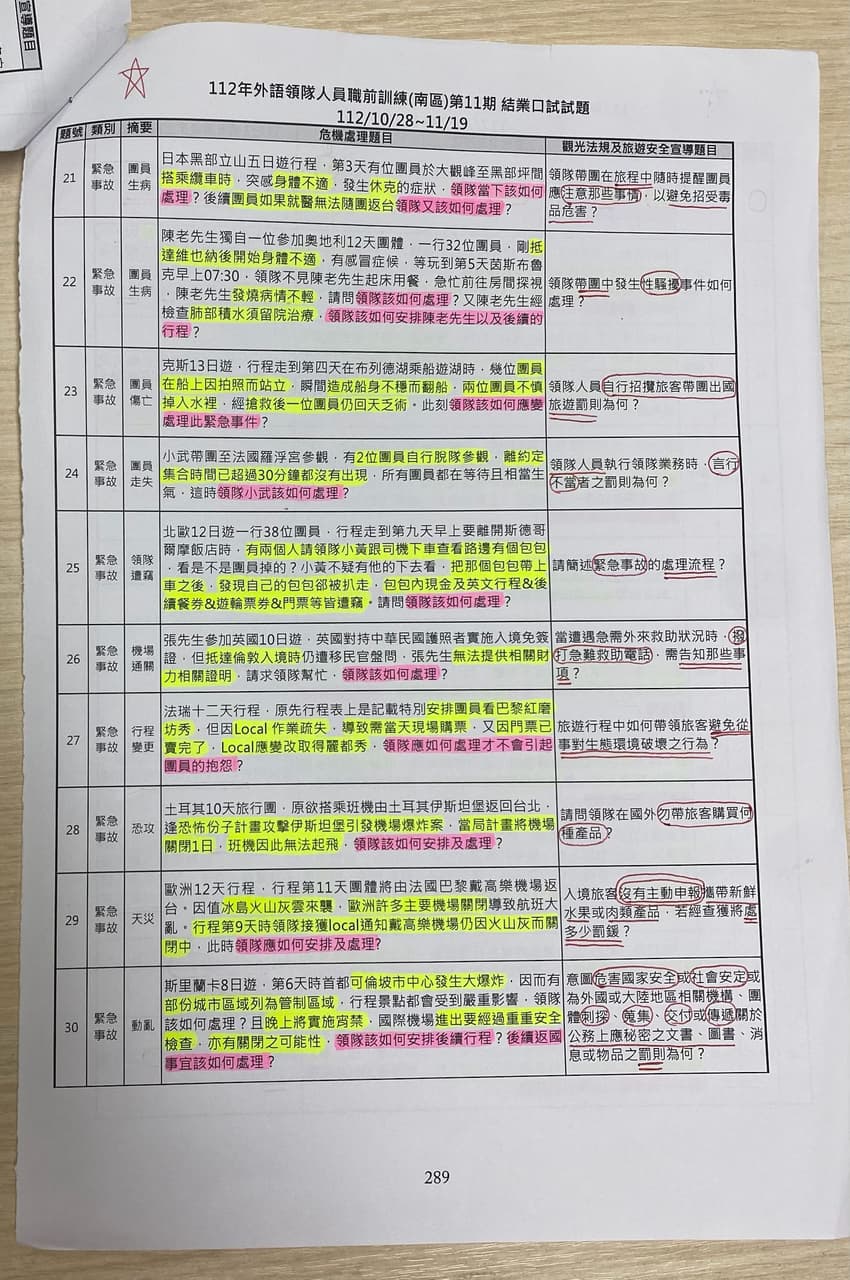 宣導題目
112年外語領隊人員職前訓練(南區)第11期 結業口試試題
112/10/28~11/19
題號 類別 摘要 危機處理題目 觀光法規及旅遊安全宣導題目
21
緊急
事故
團員
生病
日本黑部立山五日遊行程，第3天有位團員於大觀峰至黑部坪間
搭乘纜車時，突感身體不適，發生休克的症狀，領隊當下該如何
處理？後續團員如果就醫無法隨團返台領隊又該如何處理？
領隊帶團在旅程中隨時提醒團員
應注意那些事情，以避免招受毒
品危害？
22
緊急
事故
團員
生病
陳老先生獨自一位參加奧地利12天團體，一行32位團員，剛抵
達維也納後開始身體不適，有感冒症候，等玩到第5天茵斯布魯
克早上07:30，領隊不見陳老先生起床用餐，急忙前往房間探視
，陳老先生發燒病情不輕，請問領隊該如何處理？又陳老先生經
檢查肺部積水須留院治療，領隊該如何安排陳老先生以及後續的
行程？
領隊帶團中發生性騷擾事件如何
處理？
23
緊急
事故
團員
傷亡
克斯13日遊，行程走到第四天在布列德湖乘船遊湖時，幾位團員
在船上因拍照而站立，瞬間造成船身不穩而翻船，兩位團員不慎
掉入水裡，經搶救後一位團員仍回天乏術。此刻領隊該如何應變
處理此緊急事件？
領隊人員自行招攬旅客帶團出國
旅遊罰則為何？
24
緊急
事故
團員
走失
小武帶團至法國羅浮宮參觀，有2位團員自行脫隊參觀，離約定
集合時間已超過30分鐘都沒有出現，所有團員都在等待且相當生
氣，這時領隊小武該如何處理？
領隊人員執行領隊業務時，言行
不當者之罰則為何？
25
緊急
事故
領隊
遭竊
北歐12日遊一行38位團員，行程走到第九天早上要離開斯德哥
爾摩飯店時，有兩個人請領隊小黃跟司機下車查看路邊有個包包
，看是不是團員掉的？小黃不疑有他的下去看，把那個包包帶上
車之後，發現自己的包包郤被扒走，包包內現金及英文行程&後
續餐券&遊輪票券&門票等皆遭竊。請問領隊該如何處理？
請簡述緊急事故的處理流程？
26
緊急
事故
機場
通關
張先生參加英國10日遊，英國對持中華民國護照者實施入境免簽
證，但抵達倫敦入境時仍遭移民官盤問，張先生無法提供相關財
力相關證明，請求領隊幫忙，領隊該如何處理？
當遭遇急需外來救助狀況時，撥
打急難救助電話，需告知那些事
項？
27
緊急
事故
行程
變更
法瑞十二天行程，原先行程表上是記載特別安排團員看巴黎紅磨
坊秀，但因Local 作業疏失，導致需當天現場購票，又因門票已
賣完了，Local應變改取得麗都秀，領隊應如何處理才不會引起
團員的抱怨？
旅遊行程中如何帶領旅客避免從
事對生態環境破壞之行為？
28
緊急
事故
恐攻
土耳其10天旅行團，原欲搭乘班機由土耳其伊斯坦堡返回台北，
逢恐怖份子計畫攻擊伊斯坦堡引發機場爆炸案，當局計畫將機場
關閉1日，班機因此無法起飛，領隊該如何安排及處理？
請問領隊在國外勿帶旅客購買何
種產品？
29
緊急
事故
天災
歐洲12天行程，行程第11天團體將由法國巴黎戴高樂機場返
台。因值冰島火山灰雲來襲，歐洲許多主要機場關閉導致航班大
亂。行程第9天時領隊接獲local通知戴高樂機場仍因火山灰而關
閉中，此時領隊應如何安排及處理?
入境旅客沒有主動申報攜帶新鮮
水果或肉類產品，若經查獲將處
多少罰鍰？
30
緊急
事故
動亂
斯里蘭卡8日遊，第6天時首都可倫坡市中心發生大爆炸，因而有
部份城市區域列為管制區域，行程景點都會受到嚴重影響，領隊
該如何處理？且晚上將實施宵禁，國際機場進出要經過重重安全
檢查，亦有關閉之可能性，領隊該如何安排後續行程？後續返國
事宜該如何處理？
意圖危害國家安全或社會安定或
為外國或大陸地區相關機構、團
體刺探、蒐集、交付或傳遞關於
公務上應秘密之文書、圖書、消
息或物品之罰則為何？
289